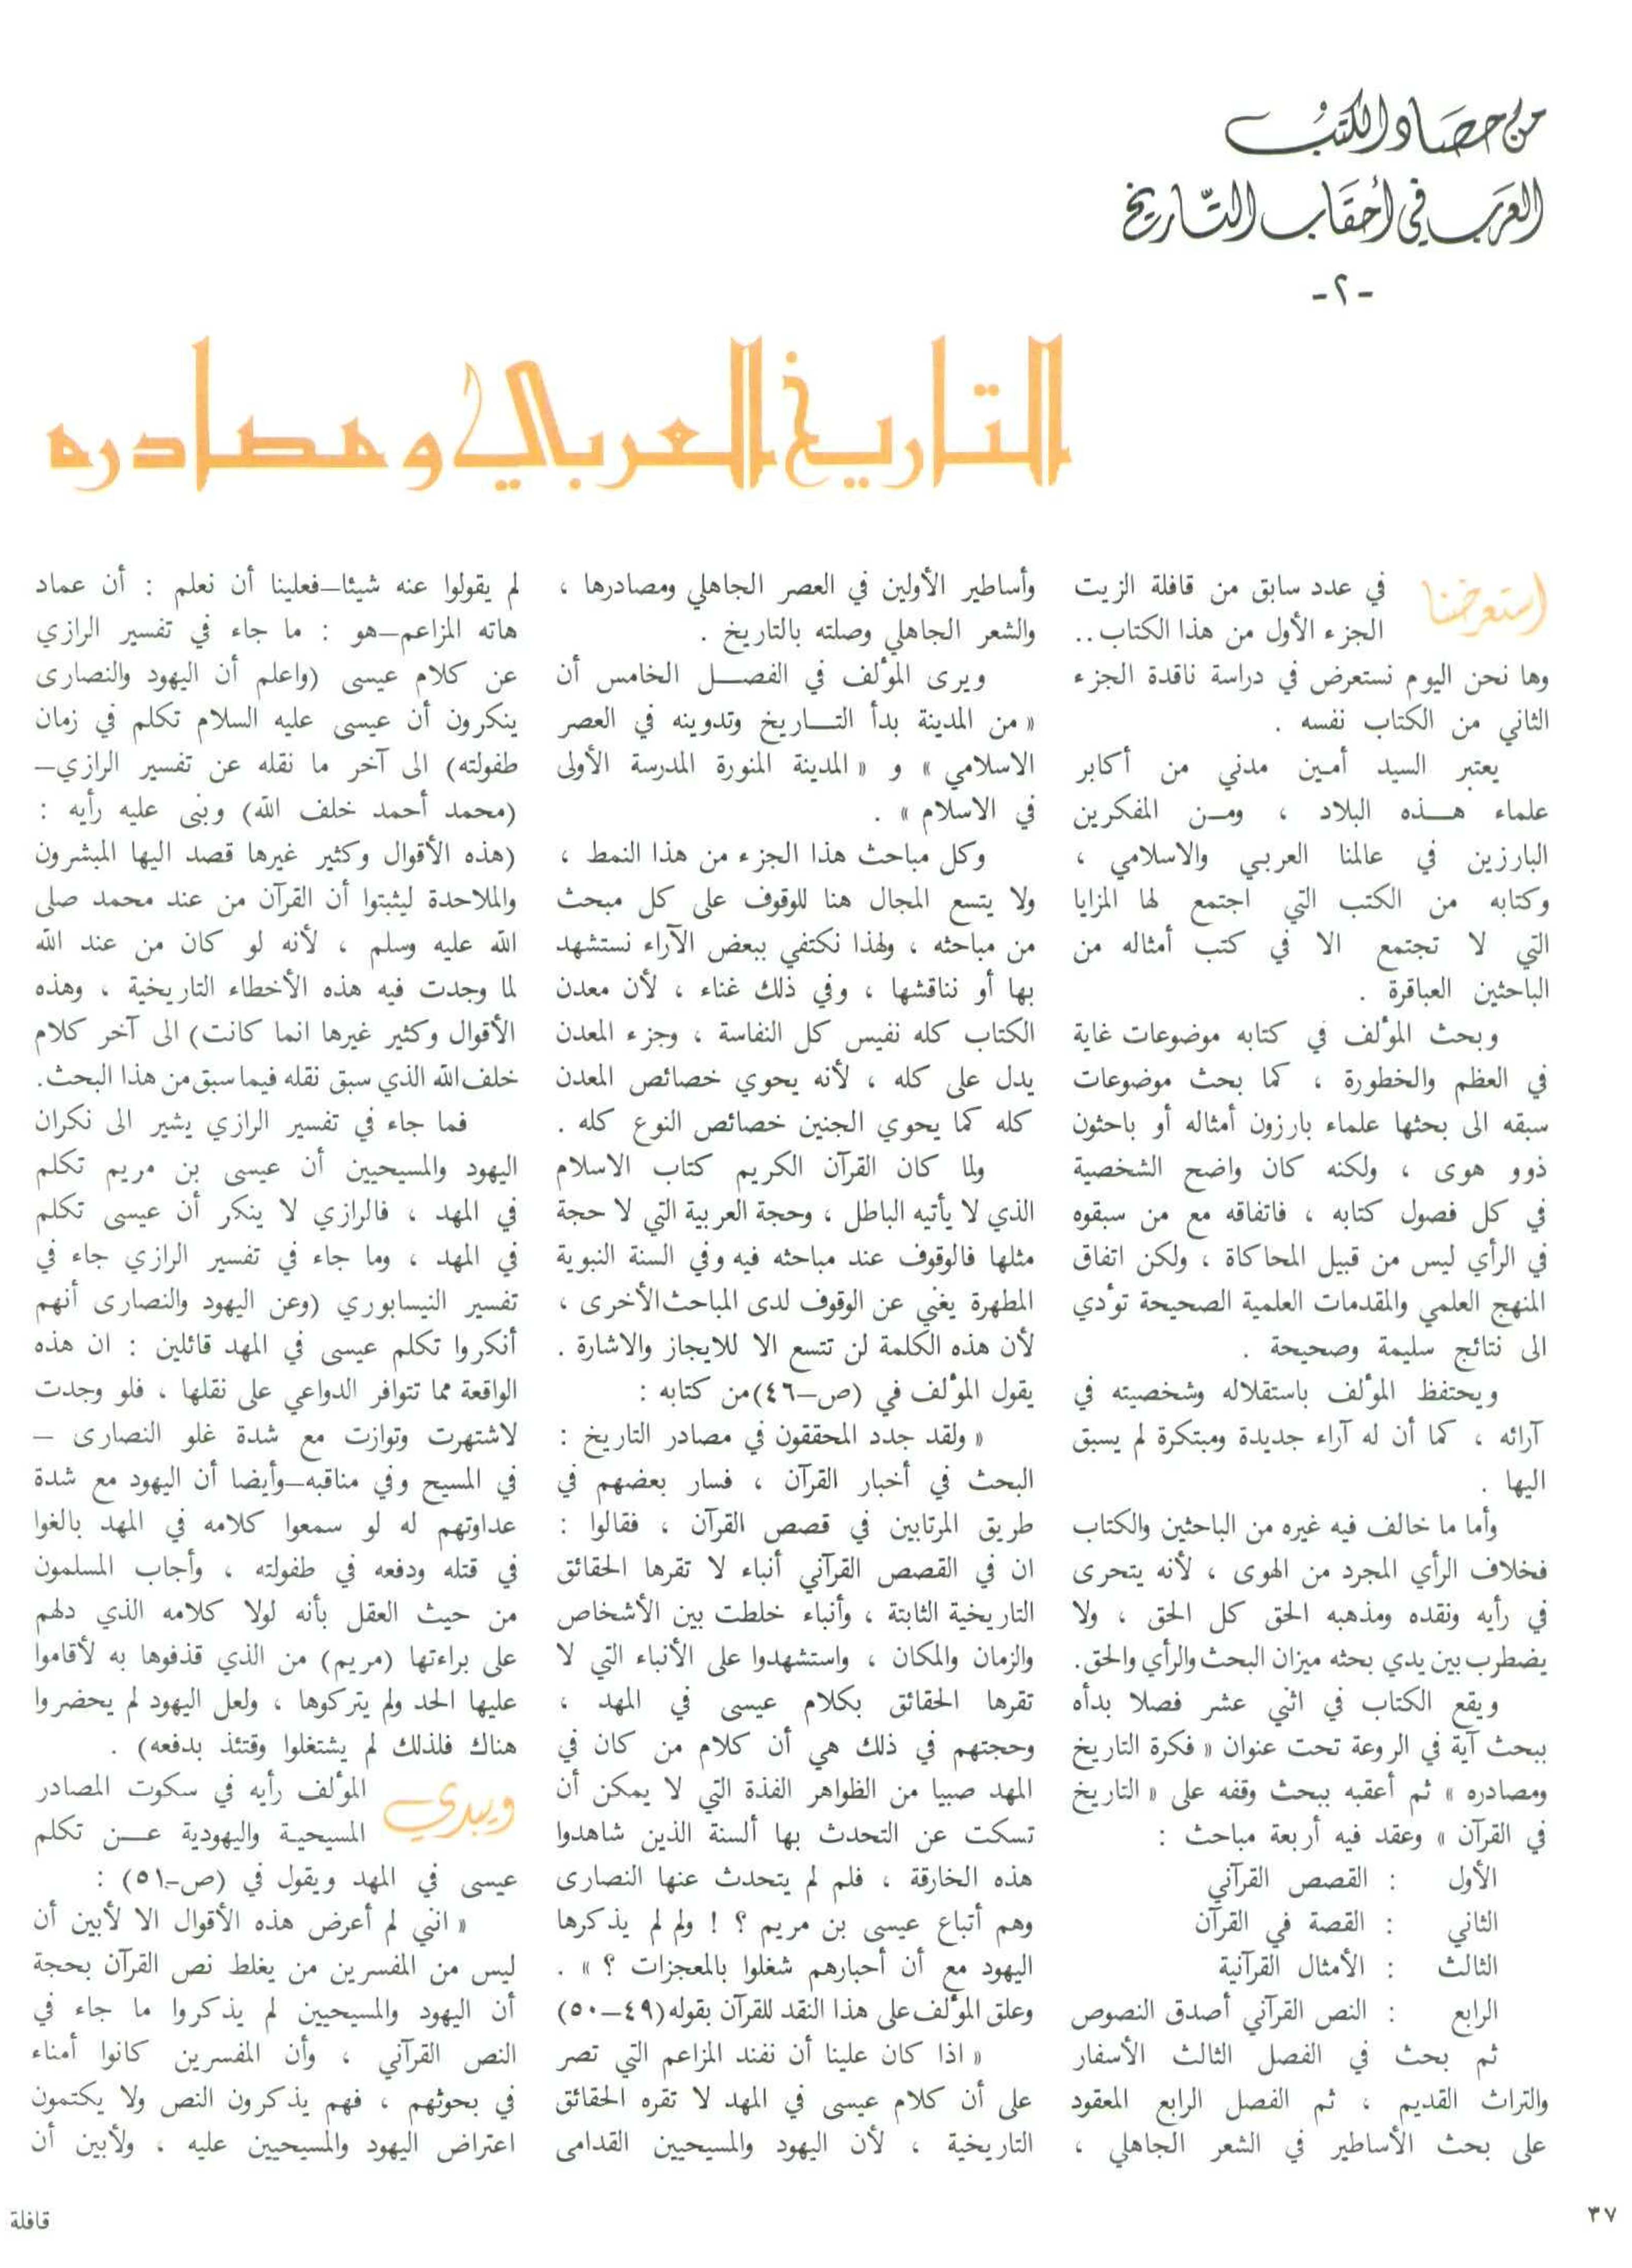 من حصاد الكتب
العرب في أحقاب التاريخ
-٢-
التاريخ العربي ومصادره
استعرضنا في عدد سابق من قافلة الزيت
الجزء الأول من هذا الكتاب ..
وها نحن اليوم نستعرض في دراسة ناقدة الجزء
الثاني من الكتاب نفسه .
يعتبر السيد أمين مدني من أكابر
علماء هذه البلاد ، ومن المفكرين
البارزين في عالمنا العربي والاسلامي ،
وكتابه من الكتب التي اجتمع لها المزايا
التي لا تجتمع الا في كتب أمثاله من
الباحثين العباقرة .
وبحث المؤلف في كتابه موضوعات غاية
في العظم والخطورة ، كما بحث موضوعات
سبقه الى بحثها علماء بارزون أمثاله أو باحثون
ذوو هوى ، ولكنه كان واضح الشخصية
في كل فصول كتابه ، فاتفاقه مع من سبقوه
في الرأي ليس من قبيل المحاكاة ، ولكن اتفاق
المنهج العلمي والمقدمات العلمية الصحيحة تؤدي
الى نتائج سليمة وصحيحة .
ويحتفظ المؤلف باستقلاله وشخصيته في
آرائه ، كما أن له آراء جديدة ومبتكرة لم يسبق
اليها .
وأما ما خالف فيه غيره من الباحثين والكتاب
فخلاف الرأي المجرد من الهوى ، لأنه يتحرى
في رأيه ونقده ومذهبه الحق كل الحق ، ولا
يضطرب بين يدي بحثه ميزان البحث والرأي والحق .
ويقع الكتاب في اثني عشر فصلا بدأه
ببحث آية في الروعة تحت عنوان « فكرة التاريخ
ومصادره » ثم أعقبه ببحث وقفه على « التاريخ
في القرآن » وعقد فيه أربعة مباحث :
الأول : القصص القرآني
الثاني : القصة في القرآن
الثالث : الأمثال القرآنية
الرابع : النص القرآني أصدق النصوص
ثم بحث في الفصل الثالث الأسفار
والتراث القديم ، ثم الفصل الرابع المعقود
على بحث الأساطير في الشعر الجاهلي ،
وأساطير الأولين في العصر الجاهلي ومصادرها ،
والشعر الجاهلي وصلته بالتاريخ .
ويرى المؤلف في الفصل الخامس أن
« من المدينة بدأ التاريخ وتدوينه في العصر
الاسلامي » و « المدينة المنورة المدرسة الأولى
في الاسلام » .
وكل مباحث هذا الجزء من هذا النمط ،
ولا يتسع المجال هنا للوقوف على كل مبحث
من مباحثه ، ولهذا نكتفي ببعض الآراء نستشهد
بها أو نناقشها ، وفي ذلك غناء ، لأن معدن
الكتاب كله نفيس كل النفاسة ، وجزء المعدن
يدل على كله ، لأنه يحوي خصائص المعدن
كله كما يحوي الجنين خصائص النوع كله .
ولما كان القرآن الكريم كتاب الاسلام
الذي لا يأتيه الباطل ، وحجة العربية التي لا حجة
مثلها فالوقوف عند مباحثه فيه وفي السنة النبوية
المطهرة يغني عن الوقوف لدى المباحث الأخرى ،
لأن هذه الكلمة لن تتسع الا للايجاز والاشارة .
يقول المؤلف في (ص—٤٦) من كتابه :
« ولقد جدد المحققون في مصادر التاريخ :
البحث في أخبار القرآن ، فسار بعضهم في
طريق المرتابين في قصص القرآن ، فقالوا :
ان في القصص القرآني أنباء لا تقرها الحقائق
التاريخية الثابتة ، وأنباء خلطت بين الأشخاص
والزمان والمكان ، واستشهدوا على الأنباء التي لا
تقرها الحقائق بكلام عيسى في المهد ،
وحجتهم في ذلك هي أن كلام من كان في
المهد صبيا من الظواهر الفذة التي لا يمكن أن
تسكت عن التحدث بها ألسنة الذين شاهدوا
هذه الخارقة ، فلم لم يتحدث عنها النصارى
وهم أتباع عيسى بن مريم ؟ ! ولم لم يذكرها
اليهود مع أن أحبارهم شغلوا بالمعجزات ؟ » .
وعلق المؤلف على هذا النقد للقرآن بقوله (٤٩—٥٠)
« اذا كان علينا أن نفند المزاعم التي تصر
على أن كلام عيسى في المهد لا تقره الحقائق
التاريخية ، لأن اليهود والمسيحيين القدامى
لم يقولوا عنه شيئا—فعلينا أن نعلم : أن عماد
هاته المزاعم—هو : ما جاء في تفسير الرازي
عن كلام عيسى (واعلم أن اليهود والنصارى
ينكرون أن عيسى عليه السلام تكلم في زمان
طفولته) الى آخر ما نقله عن تفسير الرازي—
(محمد أحمد خلف الله) وبنى عليه رأيه :
(هذه الأقوال وكثير غيرها قصد اليها المبشرون
والملاحدة ليثبتوا أن القرآن من عند محمد صلى
الله عليه وسلم ، لأنه لو كان من عند الله
لما وجدت فيه هذه الأخطاء التاريخية ، وهذه
الأقوال وكثير غيرها انما كانت) الى آخر كلام
خلف الله الذي سبق نقله فيما سبق من هذا البحث .
فما جاء في تفسير الرازي يشير الى نكران
اليهود والمسيحيين أن عيسى بن مريم تكلم
في المهد ، فالرازي لا ينكر أن عيسى تكلم
في المهد ، وما جاء في تفسير الرازي جاء في
تفسير النيسابوري (وعن اليهود والنصارى أنهم
أنكروا تكلم عيسى في المهد قائلين : ان هذه
الواقعة مما تتوافر الدواعي على نقلها ، فلو وجدت
لاشتهرت وتوازت مع شدة غلو النصارى —
في المسيح وفي مناقبه—وأيضا أن اليهود مع شدة
عداوتهم له لو سمعوا كلامه في المهد بالغوا
في قتله ودفعه في طفولته ، وأجاب المسلمون
من حيث العقل بأنه لولا كلامه الذي دلهم
على براءتها (مريم) من الذي قذفوها به لأقاموا
عليها الحد ولم يتركوها ، ولعل اليهود لم يحضروا
هناك فلذلك لم يشتغلوا وقتئذ بدفعه) .
ويبدي المؤلف رأيه في سكوت المصادر
المسيحية واليهودية عن تكلم
عيسى في المهد ويقول في (ص—٥١) :
« انني لم أعرض هذه الأقوال الا لأبين أن
ليس من المفسرين من يغلط نص القرآن بحجة
أن اليهود والمسيحيين لم يذكروا ما جاء في
النص القرآني ، وأن المفسرين كانوا أمناء
في بحوثهم ، فهم يذكرون النص ولا يكتمون
اعتراض اليهود والمسيحيين عليه ، ولأبين أن
٣٧
قافلة